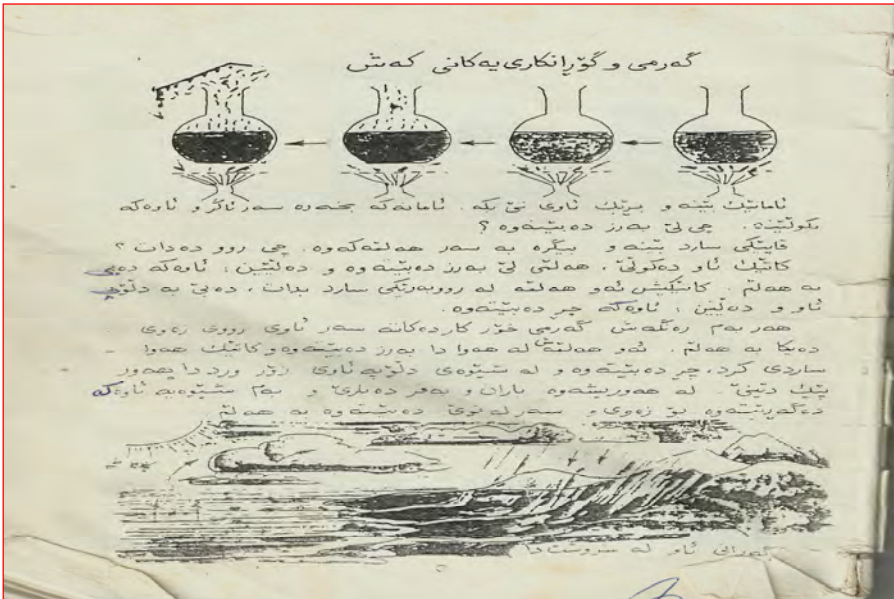 گەرمی و گۆڕانکاری یەکانی کەش
ئامانێك بێنە و بڕێك ئاوی تێ بکە. ئامانەکە بخەرە سەر ئاگر و ئاوەکە
بکوڵێنە. چی لێ بەرز دەبێتەوە ؟
قاپێکی سارد بێنە و بیگرە بە سەر هەڵمەکەوە. چی روو دەدات ؟
کاتێك ئاو دەکوڵێ، هەڵمی لێ بەرز دەبێتەوە و دەڵێین : ئاوەکە دەبێ
بە هەڵم. کاتێکیش ئەو هەڵمە لە رووبەرێکی سارد بدات، دەبێ بە دڵۆپ
ئاو و دەڵێین : ئاوەکە چڕ دەبێتەوە.
هەر بەم رەنگەش گەرمی خۆر کاردەکاتە سەر ئاوی رووی زەوی
دەیکا بە هەڵم. ئەو هەڵمەش لە هەوا دا بەرز دەبێتەوە و کاتێك هەوا -
ساردی کرد، چڕ دەبێتەوە و لە شێوەی دڵۆپە ئاوی زۆر ورد دا هەور
پێك دێنێ. لە هەوریشەوە باران و بەفر دەبارێ و بەم شێوەیە ئاوەکە
دەگەڕێتەوە بۆ زەوی و سەر لە نوێ دەبێتەوە بە هەڵم
گەڕانی ئاو لە سروشت دا